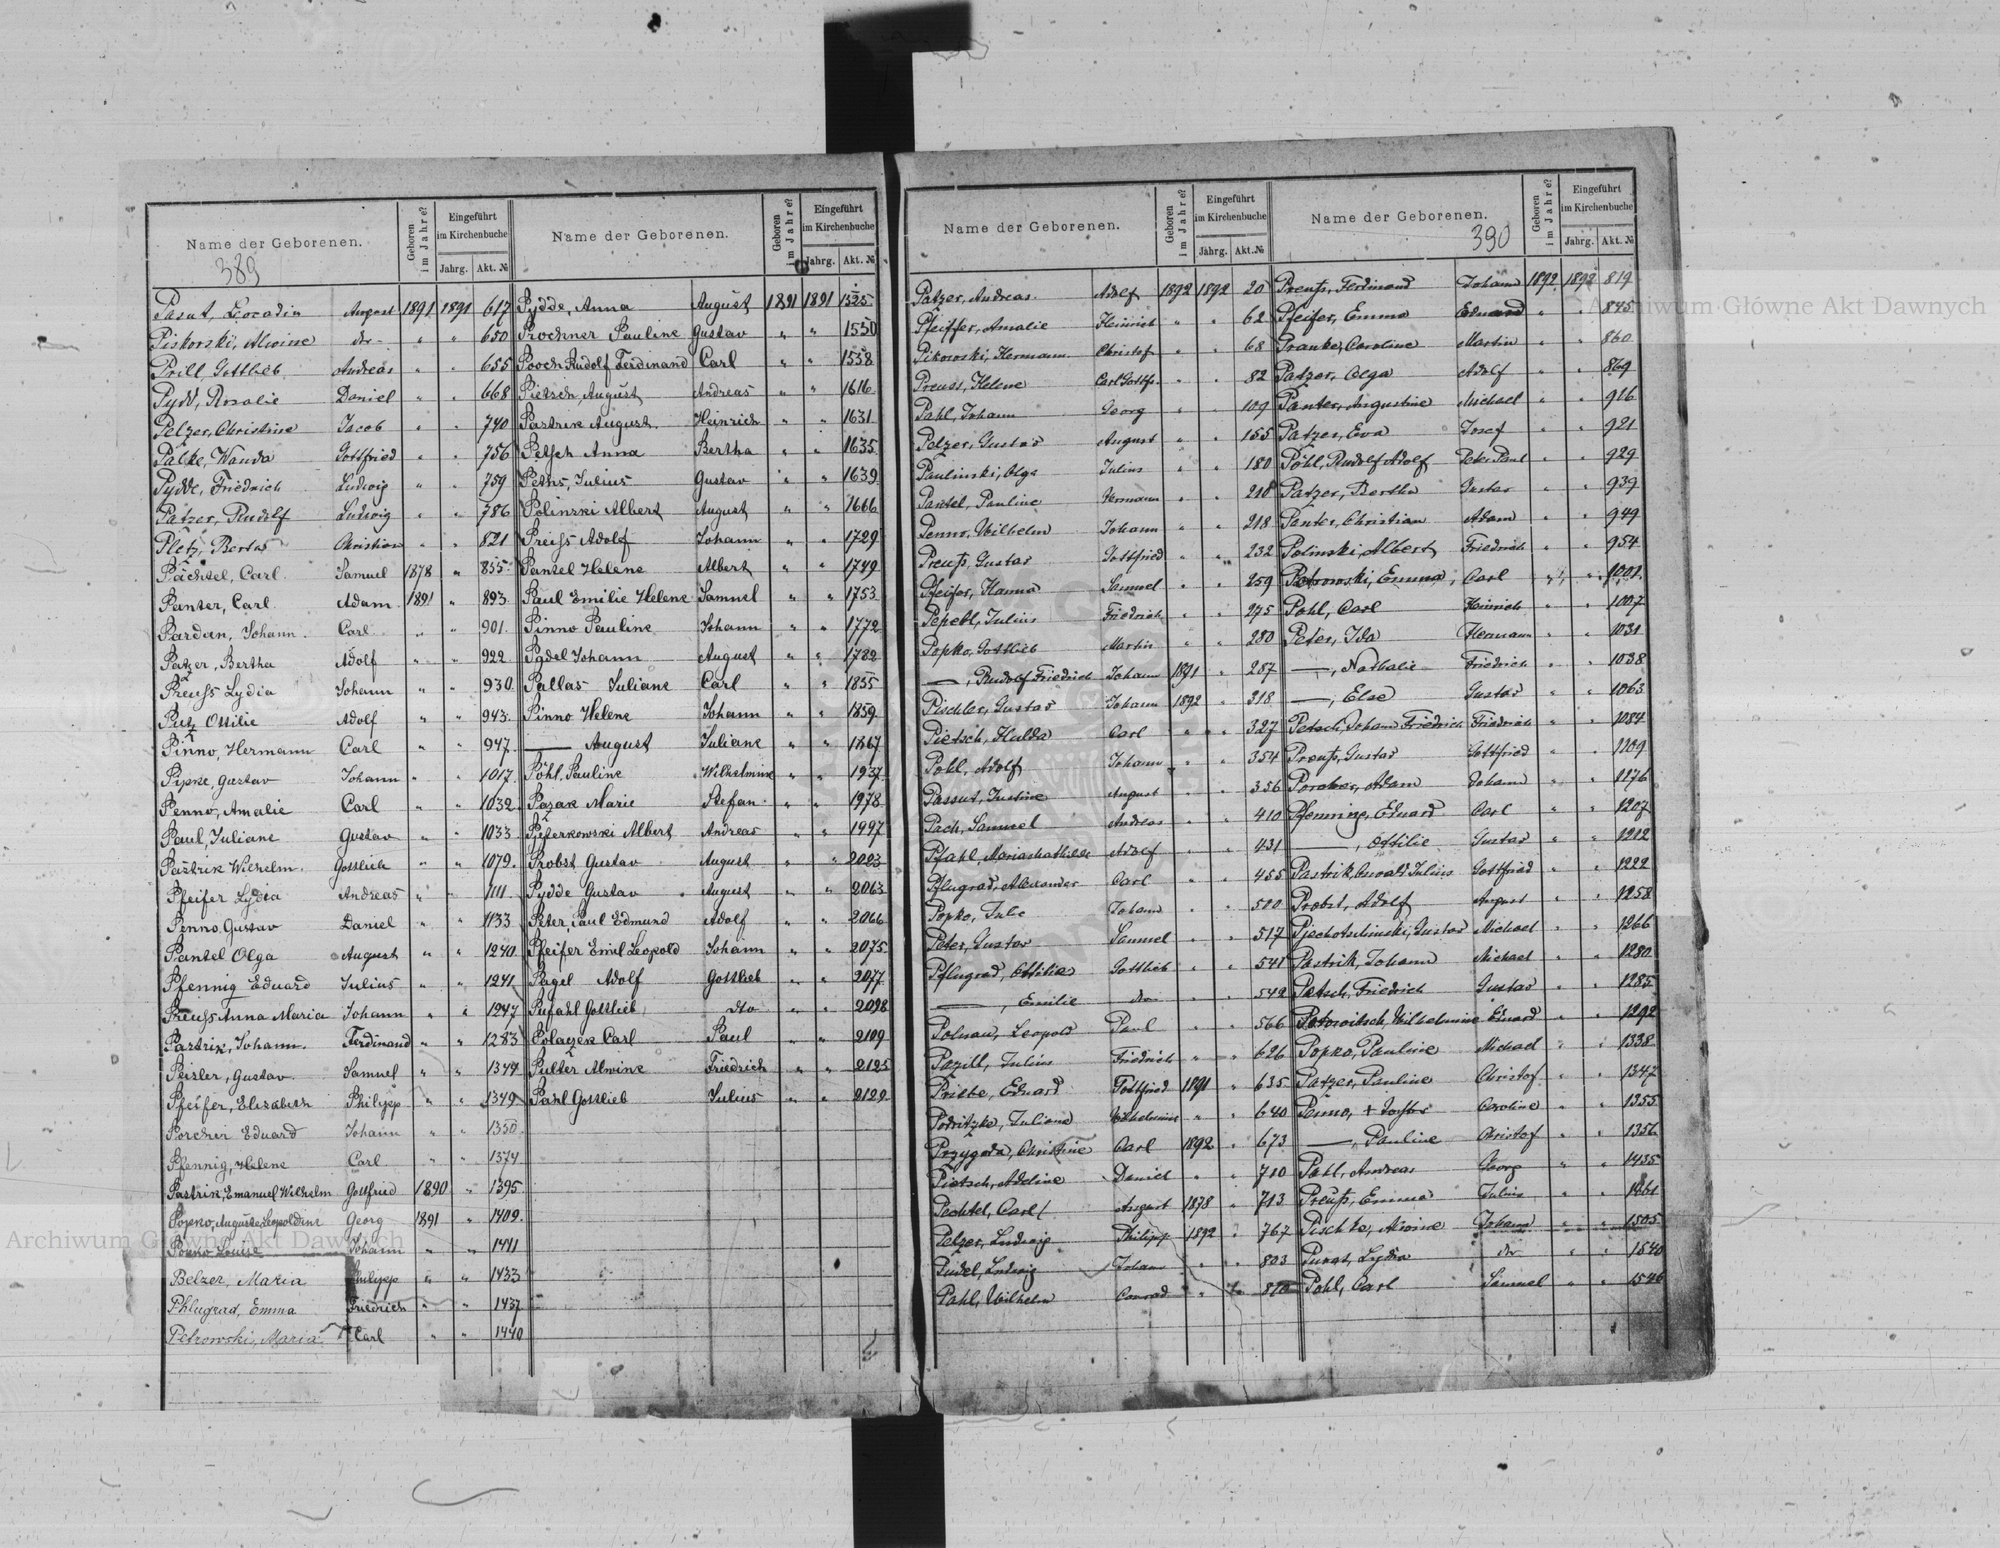 Name der Geborenen.
Geboren im Jahre?
Eingeführt im Kirchenbuche
Jahrg.
Akt. №
389
Pasut, Leocadia August 1891 1891 617
Piskorski, Alwine dto " " 650
Prill, Gottlieb Andreas " " 655
Pydd, Rosalie Daniel " " 668
Pelzer, Christine Jacob " " 740
Palke, Wanda Gottfried " " 756
Pydde, Friedrich Ludwig " " 759
Patzer, Rudolf Ludwig " " 786
Pletz, Berta Christian " " 821
Pächtel, Carl Samuel 1878 " 855
Panter, Carl Adam 1891 " 893
Pardan, Johann Carl " " 901
Patzer, Bertha Adolf " " 922
Preuss Lydia Johann " " 930
Putz Ottilie Adolf " " 943
Pinno, Hermann Carl " " 947
Pipke, Gustav Johann " " 1017
Penno, Amalie Carl " " 1032
Paul, Juliane Gustav " " 1033
Pastrik Wilhelm Gottlieb " " 1079
Pfeifer Lydia Andreas " " 1111
Penno, Gustav Daniel " " 1133
Pantel Olga August " " 1240
Pfennig Eduard Julius " " 1241
Preuss Anna Maria Johann " " 1247
Pastrik, Johann Ferdinand " " 1283
Peisler, Gustav Samuel " " 1344
Pfeifer, Elisabeth Philipp " " 1349
Porcher Eduard Johann " " 1350
Pfennig, Helene Carl " " 1374
Pastrik, Emanuel Wilhelm Gottfried 1890 " 1395
Popko, Auguste Leopoldine Georg 1891 " 1409
Louise Johann " " 1411
Belzer, Maria Philipp " " 1433
Phlugrad, Emma Friedrich " " 1437
Petrowski, Maria Carl " " 1440
Name der Geborenen.
Geboren im Jahre?
Eingeführt im Kirchenbuche
Jahrg.
Akt. №
Pydde, Anna August 1891 1891 1525
Prochner Pauline Gustav " " 1550
Pooch Rudolf Ferdinand Carl " " 1558
Pietsch, August Andreas " 1616
Pastrik August Heinrich " " 1631
Petsch Anna Bertha " " 1635
Julius Gustav " " 1639
Polinski Albert August " " 1666
Preuss Adolf Johann " " 1729
Pantel Helene Albert " " 1749
Paul Emilie Helene Samuel " " 1753
Pinno Pauline Johann " " 1772
Johann August " " 1782
Pallas Juliane Carl " " 1855
Pinno Helene Johann " " 1859
— August Juliane " " 1867
Pohl, Pauline Wilhelmine " " 1937
Pazak Marie Stefan " " 1978
Albert Andreas " " 1997
Probst Gustav August " " 2023
Pydde Gustav August " " 2063
Peter, Paul Edmund Adolf " " 2066
Pfeifer Emil Leopold Johann " " 2075
Pagel Adolf Gottlieb " " 2077
Pufahl Gottlieb dto " " 2098
Polaczek Carl Paul " " 2109
Pulter Alwine Friedrich " " 2125
Pahl Gottlieb Julius " " 2129
Name der Geborenen.
Geboren im Jahre?
Eingeführt im Kirchenbuche
Jährg.
Akt. №
Patzer, Andreas Adolf 1892 1892 20
Pfeiffer, Amalie Heinrich " " 62
Hermann Christof " " 68
Preuss, Helene Carl Gottfr. " " 82
Pahl, Johann Georg " " 109
Pelzer, Gustav August " " 155
Paulinski, Olga Julius " " 180
Pantel, Pauline Hermann " " 210
Penno, Wilhelm Johann " " 218
Preuß, Gustav Gottfried " " 232
Pfeifer, Hanna Samuel " " 259
Julius Friedrich " " 275
Popko, Gottlieb Martin " " 280
—, Rudolf Friedrich Johann 1891 " 287
Pischler, Gustav Johann 1892 " 318
Pietsch, Hulda Carl " " 327
Pohl, Adolf Johann " " 354
Passut, Justine August " " 356
Pach, Samuel Andreas " " 410
Pfahl, Maria Mathilde Adolf " " 431
Pflugrad, Alexander Carl " " 455
Popko, Julie Johann " " 500
Peter, Gustav Samuel " " 517
Pflugrad, Ottilie Gottlieb " " 541
—, Emilie dto " " 542
Leopold Paul " " 566
Pazill, Julius Friedrich " " 626
Priebe, Eduard Gottfried 1891 " 635
Podritzke, Juliane Wilhelmine " " 640
Przygoda, Christine Carl 1892 " 673
Pietsch, Adeline Daniel " " 710
Pechtel, Carl August 1878 " 713
Pelzer, Ludwig Philipp 1892 " 767
Pudel, Ludwig Johann " " 803
Pahl, Wilhelm Conrad "
Name der Geborenen.
Geboren im Jahre?
Eingeführt im Kirchenbuche
Jahrg.
Akt. №
390
Preuß, Ferdinand Johann 1892 1892 819
Pfeifer, Emma Eduard " " 845
Pranke, Caroline Martin " " 860
Patzer, Olga Adolf " " 869
Panter, Augustine Michael " " 916
Patzer, Eva Josef " " 921
Pöhl, Rudolf Adolf Peter Paul " " 929
Patzer, Bertha Gustav " " 939
Panter, Christian Adam " " 949
Polinski, Albert Friedrich " " 954
Petrowski, Emma, Carl " " 1001
Pohl, Carl Heinrich " " 1007
Peter, Ida Hermann " " 1031
—, Nathalie Friedrich " " 1038
—, Else Gustav " " 1063
Petsch, Johann Friedrich Friedrich " " 1084
Preuß, Gustav Gottfried " " 1109
Adam Johann " " 1176
Pfenning, Eduard Carl " " 1207
—, Ottilie Gustav " " 1212
Pastrik, Julius Gottfried " " 1222
Probst, Adolf August " " 1258
Gustav Michael " " 1266
Pastrik, Johann Michael " " 1280
Petsch, Friedrich Gustav " " 1285
Wilhelmine Eduard " " 1292
Popko, Pauline Michael " " 1338
Patzer, Pauline Christof " " 1347
Penno, + Tochter Caroline " " 1355
—, Pauline Christof " " 1356
Pahl, Andreas Georg " " 1435
Preuß, Emma Julius " " 1461
Alwine Johann " " 1505
Lydia dto " " 1540
Pohl, Carl Samuel " " 1546
Archiwum Główne Akt Dawnych
Archiwum Główne Akt Dawnych